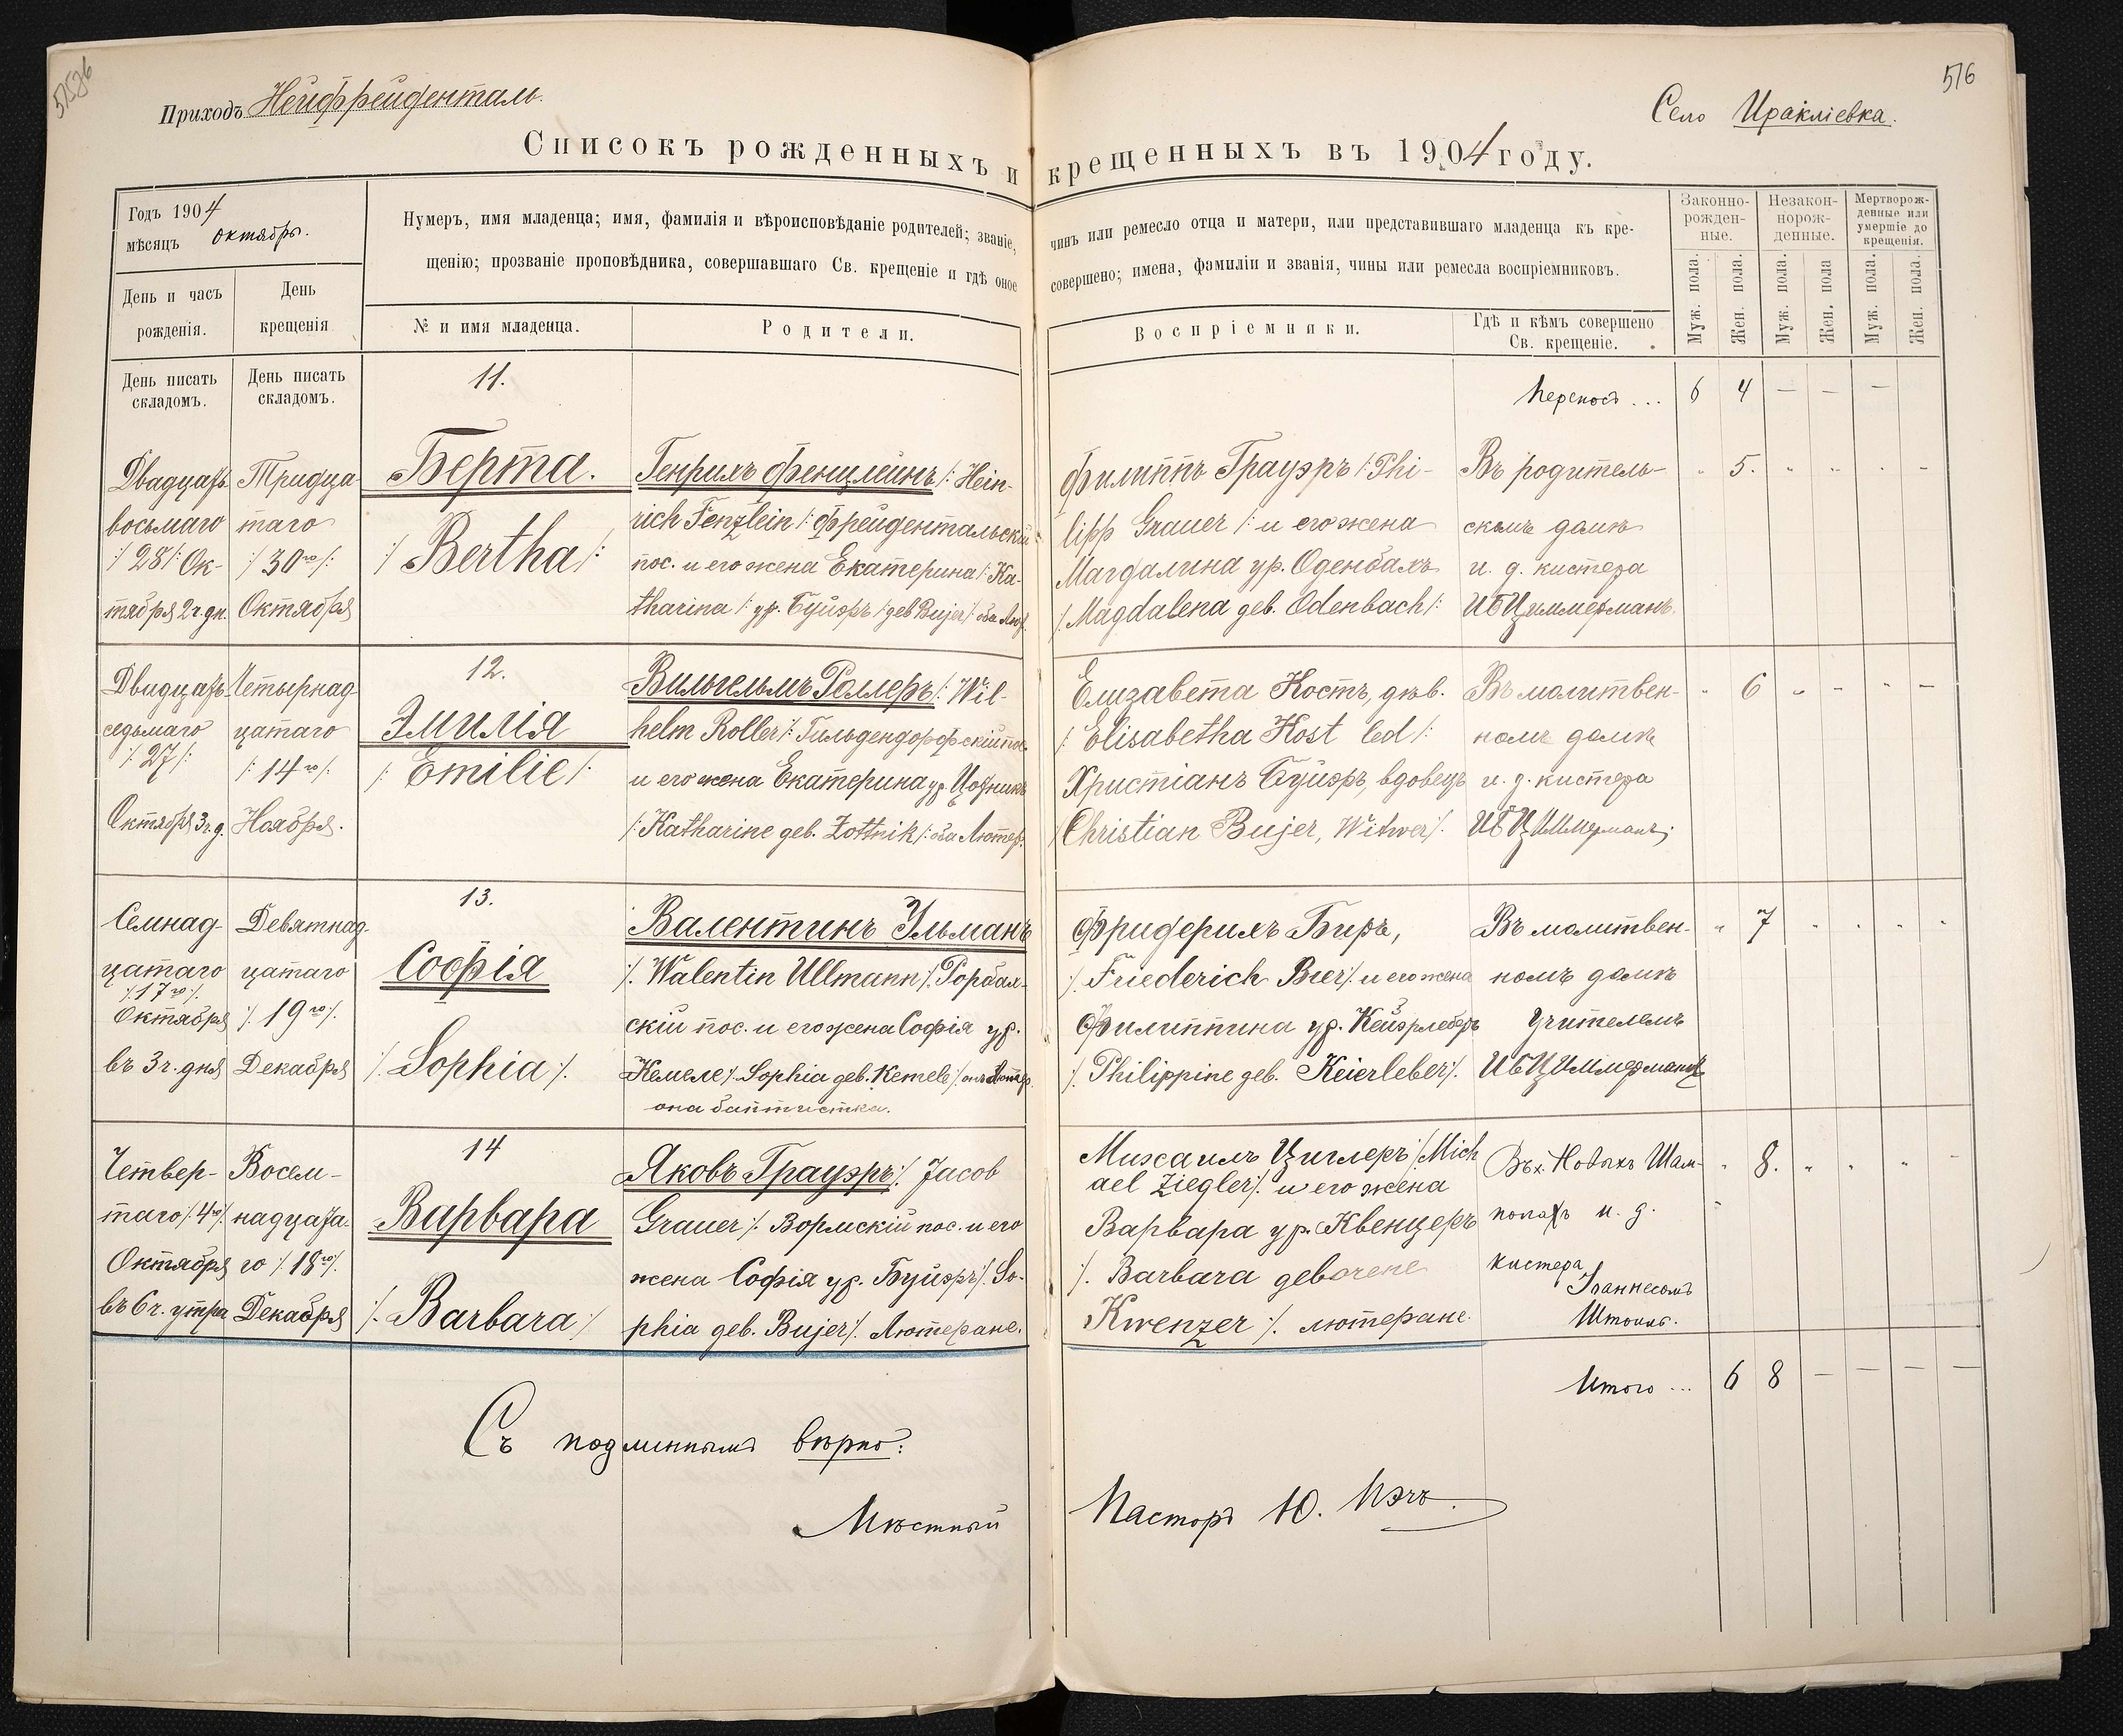 516
Приходъ Нейфрейденталь.
Село Иракліевка.
Списокъ рожденныхъ и крещенныхъ въ 1904 году.
Годъ 1904
мѣсяцъ октябрь.
День и часъ
рожденія.
День
крещенія
Нумеръ, имя младенца; имя, фамилія и вѣроисповѣданіе родителей; званіе, чинъ или ремесло отца и матери, или представившаго младенца къ кре-
щенію; прозваніе проповѣдника, совершавшаго Св. крещеніе и гдѣ оное совершено; имена, фамиліи и званія, чины или ремесла воспріемниковъ.
№ и имя младенца.
Родители.
Воспріемники.
Гдѣ и кѣмъ совершено
Св. крещеніе.
Законно-
рожден-
ные.
Незакон-
норож-
денные.
Мертворож-
денные или
умершіе до
крещенія.
Муж. пола.
Жен. пола.
Муж. пола.
Жен. пола
Муж. пола.
Жен. пола.
День писать
складомъ.
День писать
складомъ.
Переносъ... 6 4 — — —
Двадцать
восьмаго
/: 28 :/ Ок-
тября 2 ч. дн.
Тридца-
таго
/: 30го :/
Октября
11.
Берта.
/: Bertha :/
Генрихъ Фенцлейнъ /: Hein-
rich Fenzlein :/ Фрейдентальскій
пос. и его жена Екатерина /: Ka-
tharina :/ ур. Буйэръ /: geb Bujer :/ оба Лют.
Филиппъ Грауэръ /: Phi-
lipp Grauer :/ и его жена
Магдалина ур. Оденбахъ
/: Magdalena geb. Odenbach :/
Въ родитель-
скомъ домѣ
и. д. кистера
И Б Циммерманъ.
5.
Двидцать
седьмаго
/: 27 :/
Октября 3 ч. д.
Четырнад-
цатаго
/: 14го :/
Ноября.
12.
Эмилія
/: Emilie :/
Вильгельмъ Роллеръ /: Wil-
helm Roller :/ Гильдендорфскій пос.
и его жена Екатерина ур. Цотникъ
/: Katharine geb. Zottnik :/ оба Лютер.
Елизавета Хостъ, дѣв.
/: Elisabetha Host led :/
Христіанъ Буйэръ, вдовецъ
/: Christian Bujer, Witwer :/.
Въ молитвен-
номъ домѣ
и. д. кистера
И Б Циммерманъ.
6
Семнад-
цатаго
/: 17го :/
Октября
въ 3 ч. дня
Девятнад-
цатаго
/: 19го :/
Декабря
13.
Софія
/: Sophia :/.
Валентинъ Ульманъ
/: Walentin Ullmann :/ Рорбах-
скій пос. и его жена Софія ур.
Кемеле /: Sophia geb. Kemele :/ онъ лютер.
она баптистка.
Фридерихъ Биръ,
/: Friederich Bier :/ и его жена
Филиппина ур. Кейэрлеберъ
/: Philippine geb. Keierleber :/.
Въ молитвен-
номъ домѣ
Учителемъ
И Б Циммерманъ
7
Четвер-
таго /: 4го :/
Октября
въ 6 ч. утра
Восем-
надцата-
го /: 18го :/
Декабря
14
Варвара
/: Barbara :/
Яковъ Грауэръ /: Jacob
Grauer :/ Вормскій пос. и его
жена Софія ур. Буйэръ /: So-
phia geb. Bujer :/. Лютеране.
Михаилъ Циглеръ /: Mich
ael Ziegler :/ и его жена
Варвара ур. Квенцеръ
/: Barbara geborene
Kwenzer :/. лютеране.
Въ х. Новыхъ Шам-
полахъ и. д.
кистера
Іоаннесомъ
8.
Итого... 6 8 — — — —
Съ подлиннымъ вѣрно:
Мѣстный Пасторъ Ю.